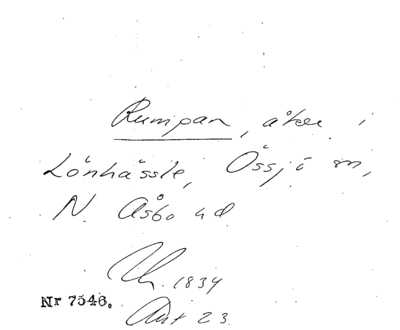 Rumpan, åker i
Lönhässle, Össjö sn,
N. Åsbo hd.
1834
Nr 7546.
Akt 23.